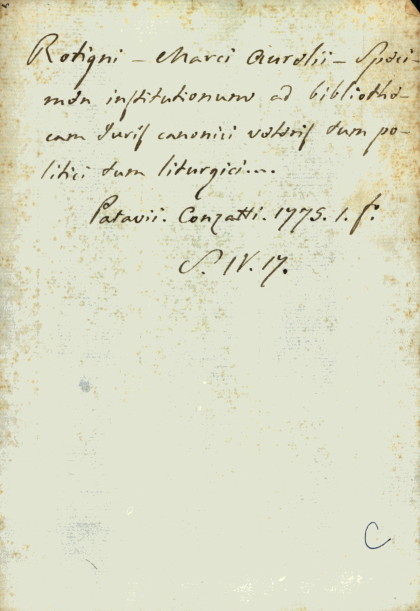 Rotigni - Marci Aurelii - Speci-
men institutionum ad bibliothe-
cam Juris canonici veteris tum po-
litici tum liturgici...
Patavii. Conzatti. 1775. 1. f.
S. IV. 17.
C